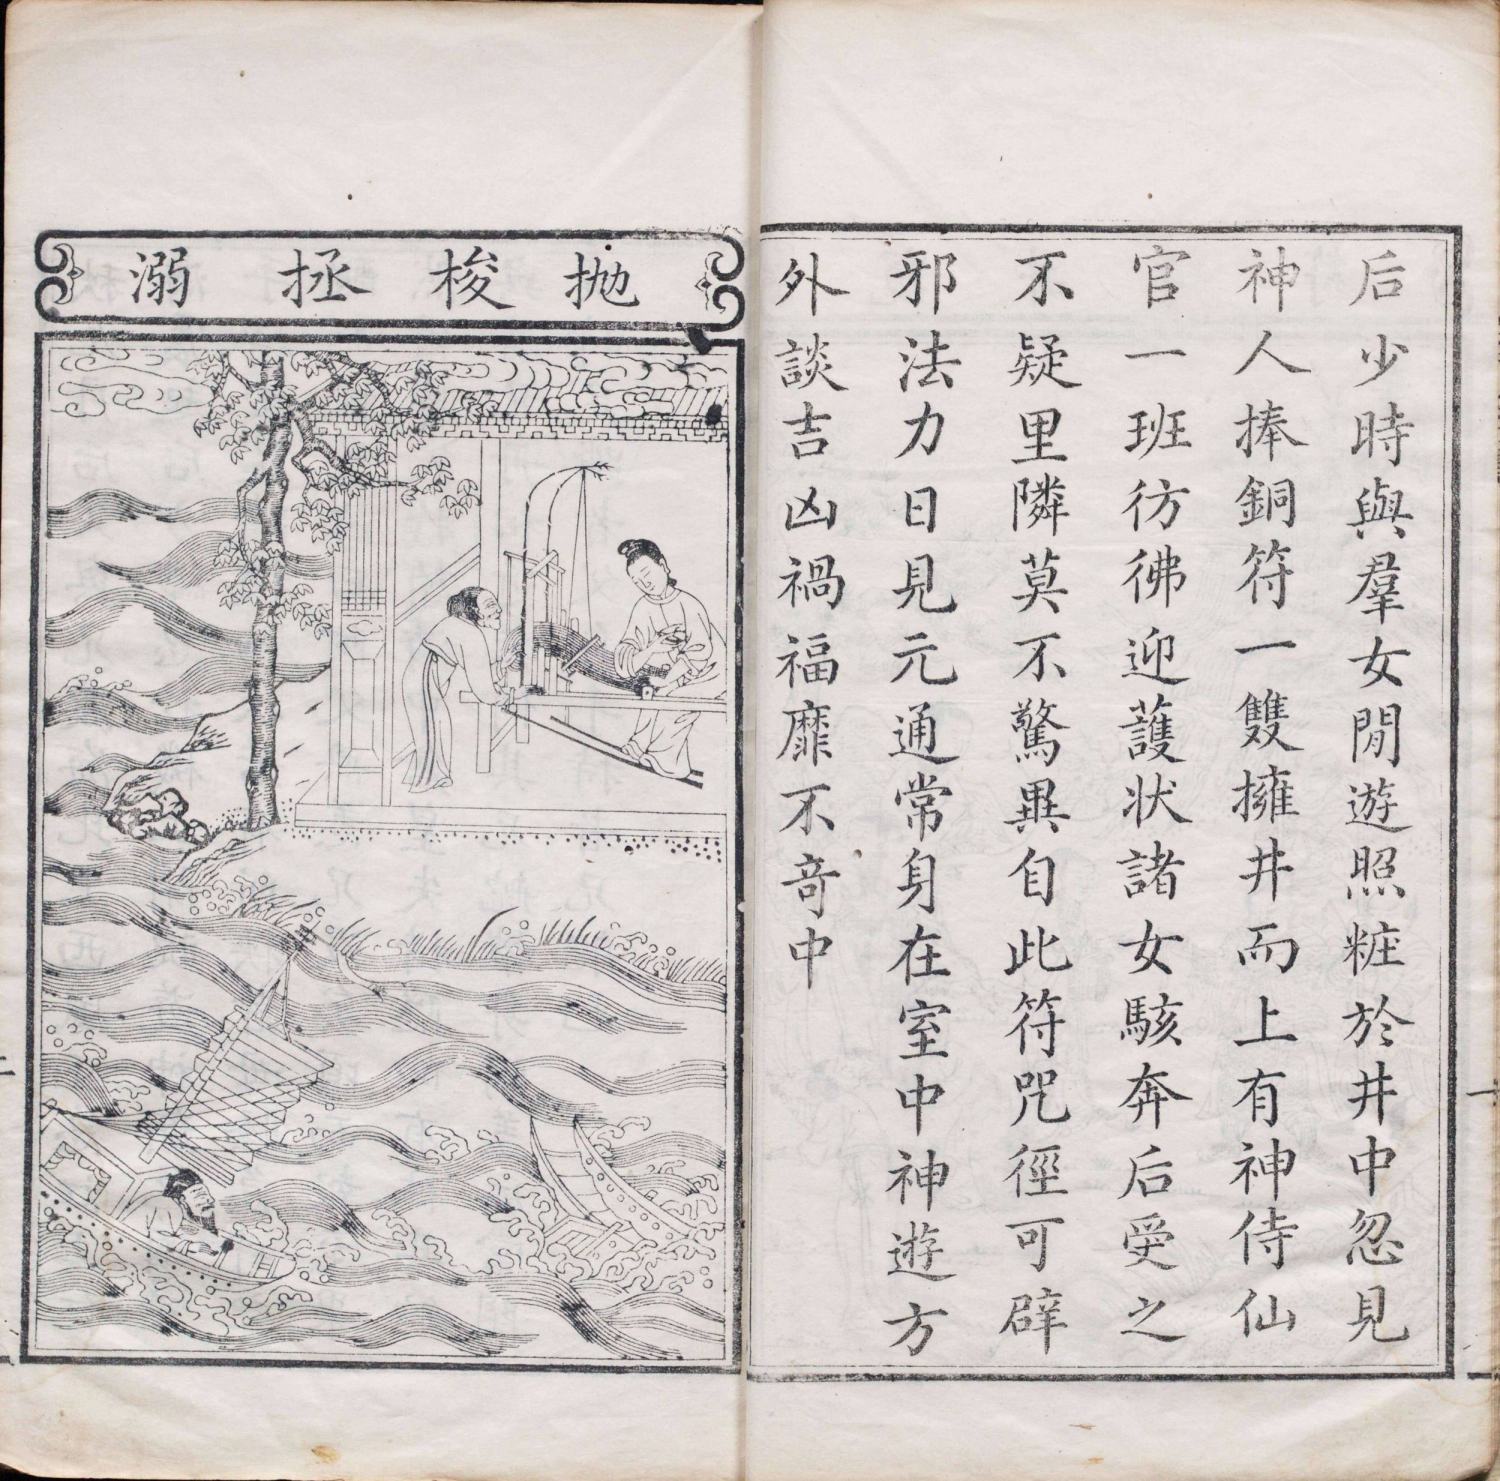 后少時與羣女閒遊照粧於井中忽見
神人捧銅符一雙擁井而上有神侍仙
官一班彷彿迎護状諸女駭奔后受之
不疑里隣莫不驚異自此符咒徑可辟
邪法力日見元通常身在室中神遊方
外談吉凶禍福靡不竒中
拋梭拯溺
一
二